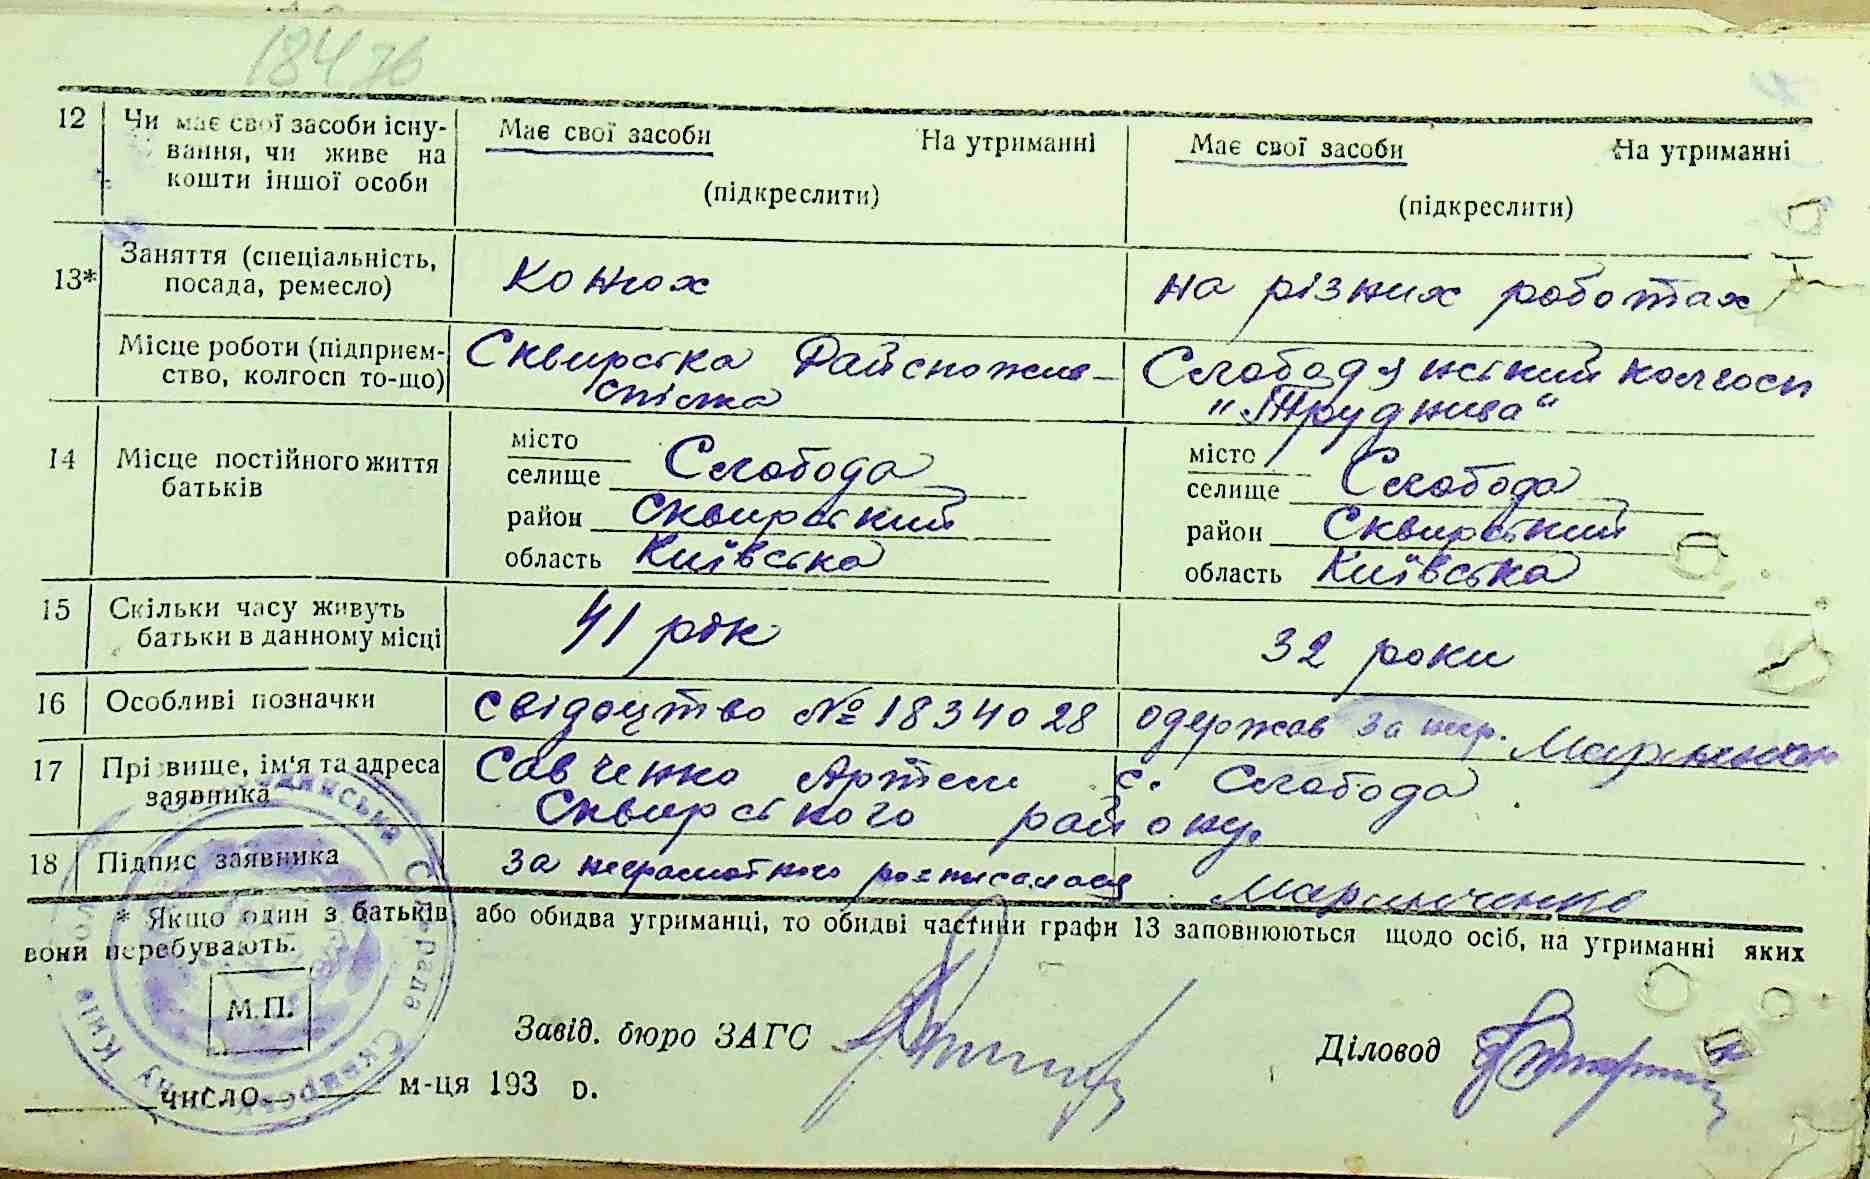 18476
12 Чи має свої засоби існу-
вання, чи живе на
кошти іншої особи
Має свої засоби На утриманні
(підкреслити)
Має свої засоби На утриманні
(підкреслити)
13* Заняття (спеціальність,
посада, ремесло)
конюх
на різних роботах
Місце роботи (підприєм-
ство, колгосп то-що)
Сквирська Райспожив-
спілка
Слободянський колгосп
"Трудніва"
14 Місце постійного життя
батьків
місто
селище Слобода
район Сквирський
область Київська
місто
селище Слобода
район Сквирський
область Київська
15 Скільки часу живуть
батьки в данному місці
41 рік
32 роки
16 Особливі позначки
свідоцтво № 1834028 одержав за негр. Маринченко
17 Прізвище, ім'я та адреса
заявника
Савченко Артем с. Слобода
Сквирського району.
18 Підпис заявника
за неграмотного розписалася Маринченко
* Якщо один з батьків, або обидва утриманці, то обидві частини графи 13 заповнюються щодо осіб, на утриманні яких
вони перебувають.
М.П.
Завід. бюро ЗАГС
Діловод
число м-ця 193 р.